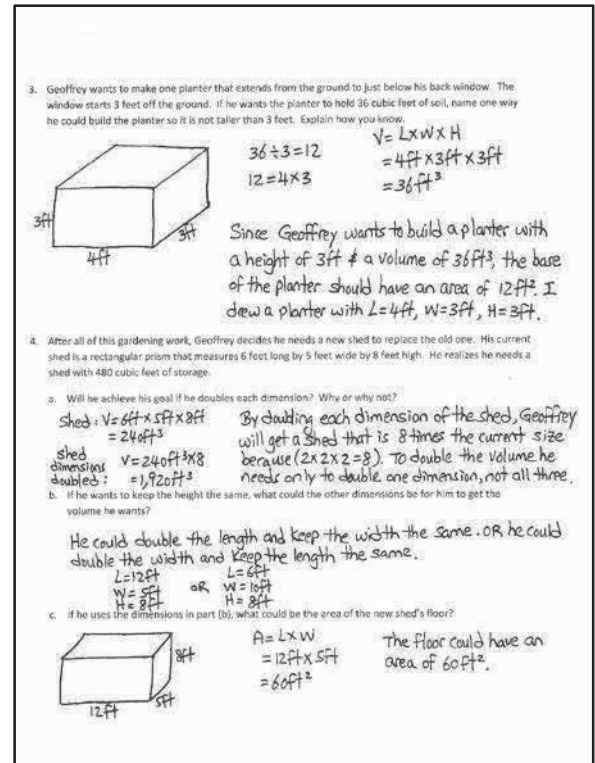 3. Geoffrey wants to make one planter that extends from the ground to just below his back window. The
window starts 3 feet off the ground. If he wants the planter to hold 36 cubic feet of soil, name one way
he could build the planter so it is not taller than 3 feet. Explain how you know.
36÷3=12
12=4×3
V= L×W×H
=4ft×3ft×3ft
=36ft³
3ft
4ft
3ft
Since Geoffrey wants to build a planter with
a height of 3ft & a volume of 36ft³, the base
of the planter should have an area of 12ft². I
drew a planter with L=4ft, W=3ft, H=3ft.
4. After all of this gardening work, Geoffrey decides he needs a new shed to replace the old one. His current
shed is a rectangular prism that measures 6 feet long by 5 feet wide by 8 feet high. He realizes he needs a
shed with 480 cubic feet of storage.
a. Will he achieve his goal if he doubles each dimension? Why or why not?
Shed: V=6ft×5ft×8ft
=240ft³
shed
dimensions
doubled:
V=240ft³×8
=1,920ft³
By doubling each dimension of the shed, Geoffrey
will get a shed that is 8 times the current size
because (2×2×2=8). To double the volume he
needs only to double one dimension, not all three.
b. If he wants to keep the height the same, what could the other dimensions be for him to get the
volume he wants?
He could double the length and keep the width the same. OR he could
double the width and keep the length the same.
L=12ft
W=5ft
H=8ft
OR
L=6ft
W=10ft
H=8ft
c. If he uses the dimensions in part (b), what could be the area of the new shed's floor?
8ft
5ft
12ft
A=L×W
=12ft×5ft
=60ft²
The floor could have an
area of 60ft².